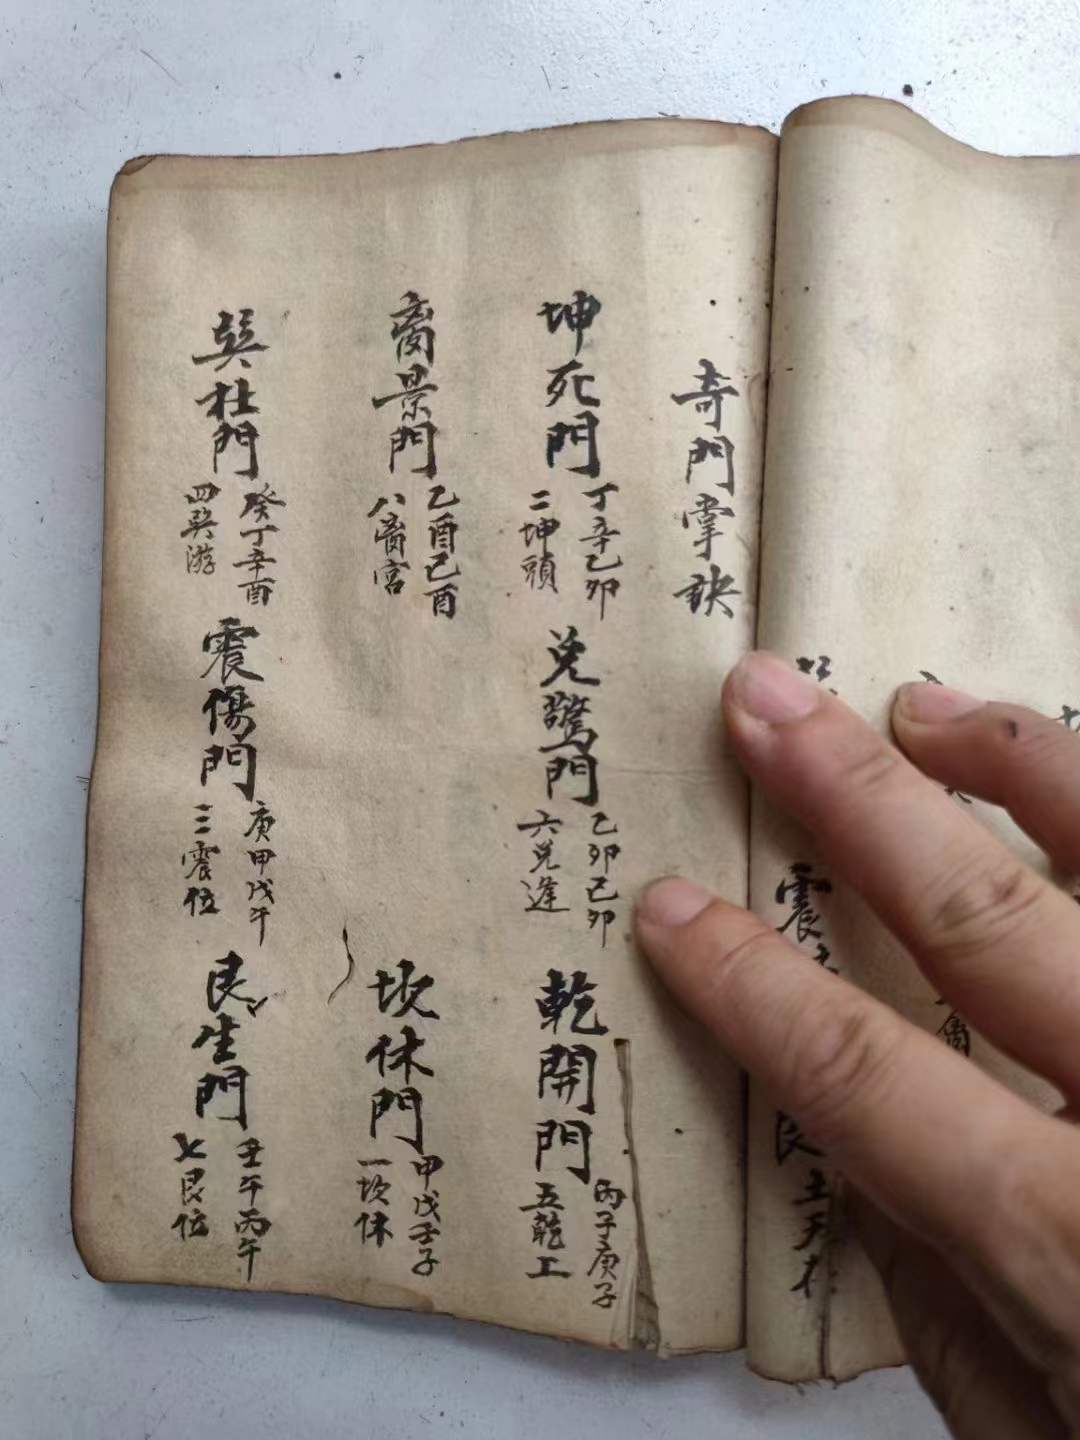 奇門掌訣
坤死門
丁辛乙卯
二坤頭
兌驚門
乙卯己卯
六兌逢
乾開門
丙子庚子
五乾工
离景門
乙酉己酉
八离宮
坎休門
甲戊壬子
一坎休
巽杜門
癸丁辛酉
四巽游
震傷門
庚甲戊午
三震位
艮生門
壬午丙午
七艮位
震